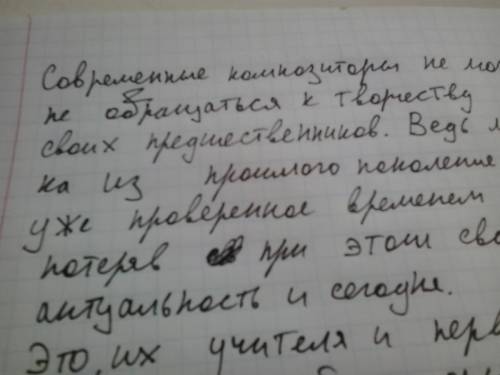 Современные композиторы не мо
не обращаться к творчеству
своих предшественников. Ведь м
ка из прошлого поколение
уже проверенное временем
потеряв при этом сво
актуальность и сегодня.
Это, их учителя и перв